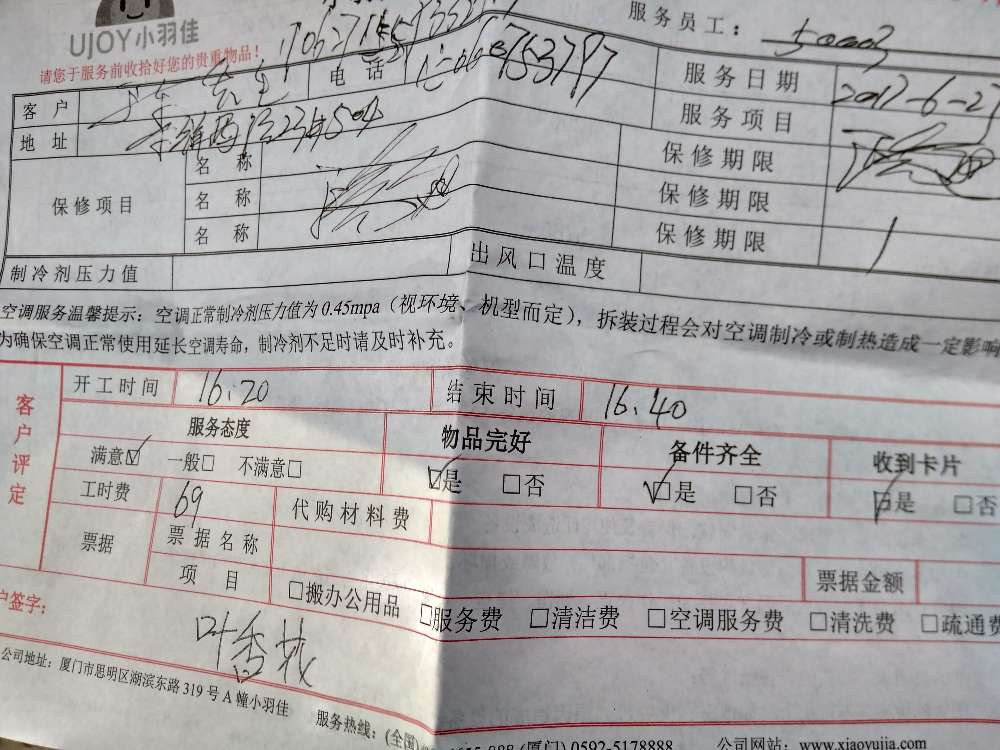 UJOY小羽佳
请您于服务前收拾好您的贵重物品！
服务员工：
客户 电话 753797 服务日期 2017-6-23
地址 服务项目
保修项目 名称 保修期限
名称 保修期限
名称 保修期限
制冷剂压力值 出风口温度
空调服务温馨提示：空调正常制冷剂压力值为0.45mpa（视环境、机型而定），拆装过程会对空调制冷或制热造成一定影响
为确保空调正常使用延长空调寿命，制冷剂不足时请及时补充。
客户评定
开工时间 16.20 结束时间 16.40
服务态度 物品完好 备件齐全 收到卡片
满意☑ 一般□ 不满意□ ☑是 □否 ☑是 □否 ☑是 □否
工时费 69 代购材料费
票据 票据名称 票据金额
项目 □搬办公用品 □服务费 □清洁费 □空调服务费 □清洗费 □疏通费
户签字：
公司地址：厦门市思明区湖滨东路319号A幢小羽佳 服务热线：(全国) (厦门) 0592-5178888 公司网站：www.xiaoyujia.com